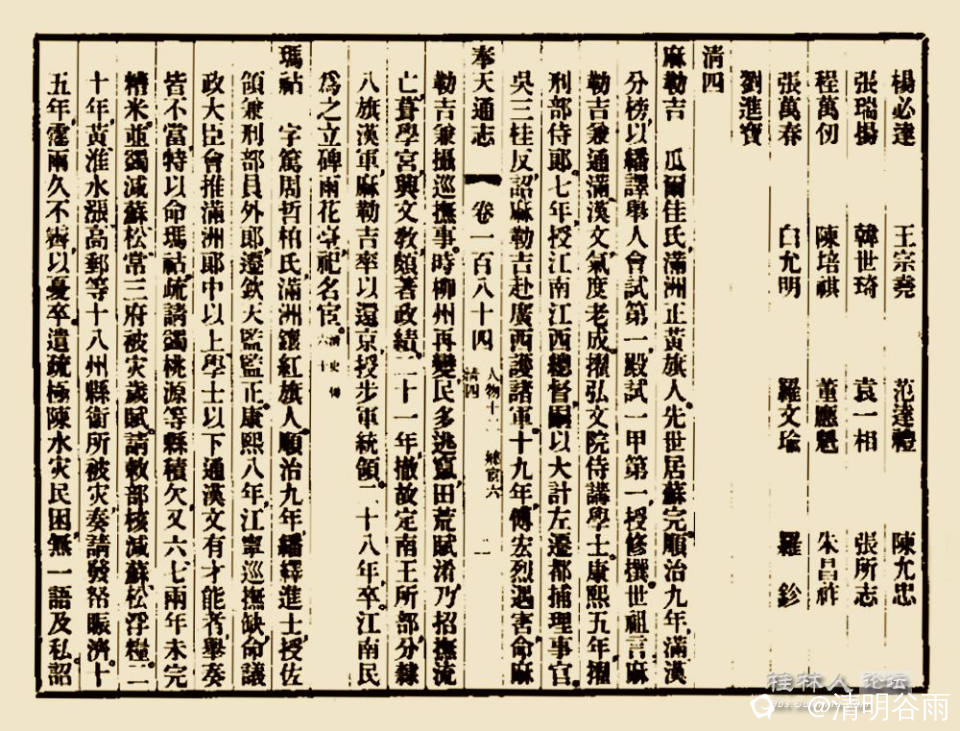 楊必達 王宗堯 范達禮 陳允忠
張瑞揚 韓世琦 袁一相 張所志
程萬仞 陳培祺 董應魁 朱昌祚
張萬春 白允明 羅文瑜 羅鈔
劉進寶
清四
麻勒吉 瓜爾佳氏滿洲正黃旗人先世居蘇完順治九年滿漢
分榜以繙譯舉人會試第一殿試一甲第一授修撰世祖言麻
勒吉兼通滿漢文氣度老成擢弘文院侍講學士康熙五年擢
刑部侍郎七年授江南江西總督嗣以大計左遷都捕理事官
吳三桂反詔麻勒吉赴廣西護諸軍十九年傅宏烈遇害命麻
奉天通志 卷一百八十四 人物十二 清四
勒吉兼攝巡撫事時柳州再變民多逃竄田荒賦淆乃招撫流
亡葺學宮興文教頗著政績二十一年撤故定南王所部分隸
八旗漢軍麻勒吉率以還京授步軍統領二十八年卒江南民
爲之立碑雨花臺祀名宦 清史傳六十
瑪祜 字篤周哲柏氏滿洲鑲紅旗人順治九年繙繹進士授佐
領兼刑部員外郎遷欽天監監正康熙八年江寧巡撫缺命議
政大臣會推滿洲郎中以上學士以下通漢文有才能者舉奏
皆不當特以命瑪祜疏請蠲桃源等縣積欠又六七兩年未完
糟米並蠲減蘇松常三府被灾歲賦請敕部核減蘇松浮糧二
十年黃淮水漲高郵等十八州縣衛所被灾奏請發帑賑濟十
五年霪雨久不霽以憂卒遺疏極陳水灾民困無一語及私詔
桂林人 论坛
@清明谷雨